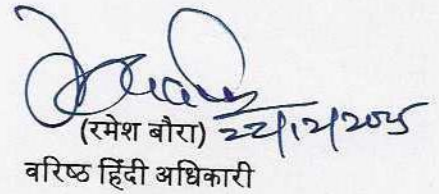 (रमेश बौरा) 22/12/2025
वरिष्ठ हिंदी अधिकारी